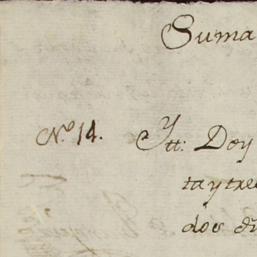 Suma
N.º 14. Ytt: Doy
ta y tres
dos